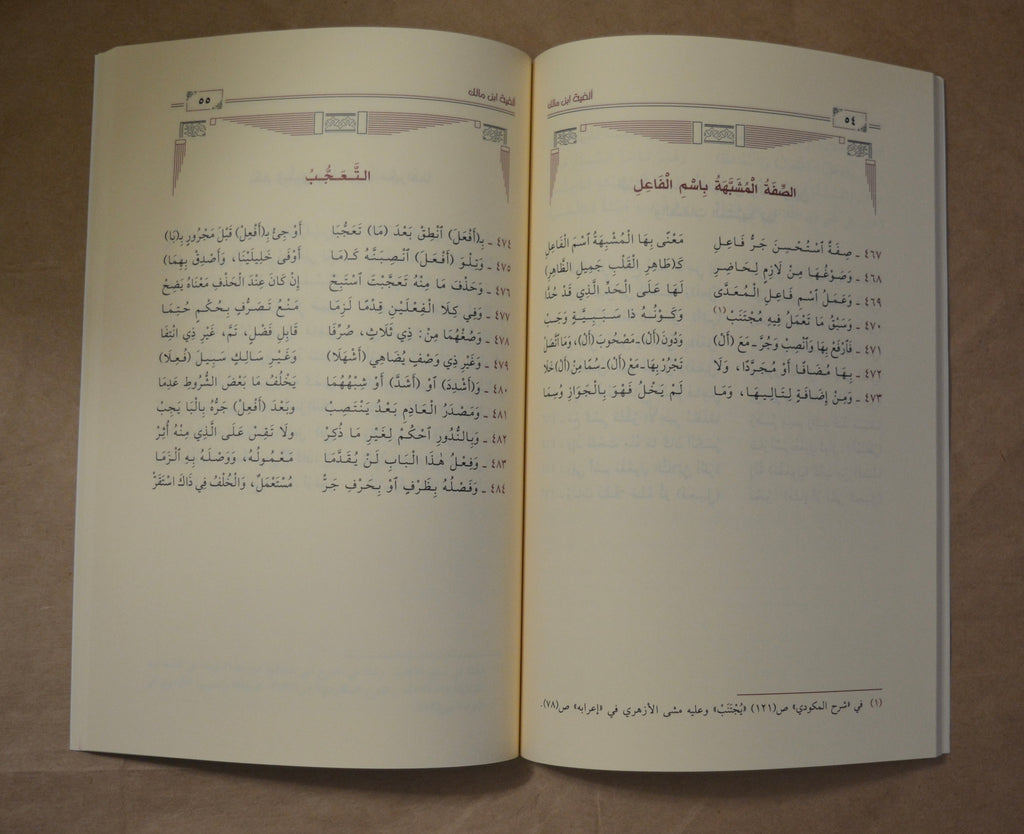 ألفية ابن مالك
٥٤
الصِّفَةُ الْمُشَبَّهَةُ بِاسْمِ الْفَاعِلِ
٤٦٧ ـ صِفَةٌ ٱسْتُحْسِنَ جَرُّ فَاعِلِ مَعْنًى بِهَا الْمُشْبِهَةُ ٱسْمَ الْفَاعِلِ
٤٦٨ ـ وَصَوْغُهَا مِنْ لَازِمٍ لِحَاضِرِ كَـ(طَاهِرِ الْقَلْبِ جَمِيلِ الظَّاهِرِ)
٤٦٩ ـ وَعَمَلُ ٱسْمِ فَاعِلِ الْمُعَدَّى لَهَا عَلَى الْحَدِّ الَّذِي قَدْ حُدَّا
٤٧٠ ـ وَسَبْقُ مَا تَعْمَلُ فِيهِ مُجْتَنَبْ(١) وَكَوْنُهُ ذَا سَبَبِيَّةٍ وَجَبْ
٤٧١ ـ فَٱرْفَعْ بِهَا وَٱنْصِبْ وَجُرَّ ـ مَعَ (أَلْ) وَدُونَ (أَلْ) ـ مَصْحُوبَ (أَلْ)، وَمَا ٱتَّصَلْ
٤٧٢ ـ بِهَا مُضَافًا أَوْ مُجَرَّدًا، وَلَا تَجْرُرْ بِهَا ـ مَعْ (أَلْ) ـ سُمًا مِنْ (أَلْ) خَلَا
٤٧٣ ـ وَمِنْ إِضَافَةٍ لِتَالِيهَا، وَمَا لَمْ يَخْلُ فَهْوَ بِالْجَوَازِ وُسِمَا
(١) في «شرح المكودي» ص(١٢١) «يُجْتَنَبْ» وعليه مشى الأزهري في «إعرابه» ص(٧٨).
ألفية ابن مالك
٥٥
التَّعَجُّبُ
٤٧٤ ـ بِـ(أَفْعَلَ) ٱنْطِقْ بَعْدَ (مَا) تَعَجُّبَا أَوْ جِئْ بِـ(أَفْعِلْ) قَبْلَ مَجْرُورٍ بِـ(بَا)
٤٧٥ ـ وَتِلْوَ (أَفْعَلَ) ٱنْصِبَنَّهُ كَـ(مَا أَوْفَى خَلِيلَيْنَا، وَأَصْدِقْ بِهِمَا)
٤٧٦ ـ وَحَذْفَ مَا مِنْهُ تَعَجَّبْتَ ٱسْتَبِحْ إِنْ كَانَ عِنْدَ الْحَذْفِ مَعْنَاهُ يَضِحْ
٤٧٧ ـ وَفِي كِلَا الْفِعْلَيْنِ قِدْمًا لَزِمَا مَنْعُ تَصَرُّفٍ بِحُكْمٍ حُتِمَا
٤٧٨ ـ وَصُغْهُمَا مِنْ: ذِي ثَلَاثٍ، صُرِّفَا قَابِلِ فَضْلٍ، تَمَّ، غَيْرِ ذِي انْتِفَا
٤٧٩ ـ وَغَيْرِ ذِي وَصْفٍ يُضَاهِي (أَشْهَلَا) وَغَيْرِ سَالِكٍ سَبِيلَ (فُعِلَا)
٤٨٠ ـ وَ(أَشْدِدَ) ٱوْ (أَشَدَّ) أَوْ شِبْهُهُمَا يَخْلُفُ مَا بَعْضَ الشُّرُوطِ عَدِمَا
٤٨١ ـ وَمَصْدَرُ الْعَادِمِ بَعْدُ يَنْتَصِبْ وَبَعْدَ (أَفْعِلْ) جَرُّهُ بِالْبَا يَجِبْ
٤٨٢ ـ وَبِالنُّدُورِ ٱحْكُمْ لِغَيْرِ مَا ذُكِرْ وَلَا تَقِسْ عَلَى الَّذِي مِنْهُ أُثِرْ
٤٨٣ ـ وَفِعْلُ هَٰذَا الْبَابِ لَنْ يُقَدَّمَا مَعْمُولُهُ، وَوَصْلَهُ بِهِ ٱلْزَمَا
٤٨٤ ـ وَفَصْلُهُ بِظَرْفٍ ٱوْ بِحَرْفِ جَرّْ مُسْتَعْمَلٌ، وَالْخُلْفُ فِي ذَاكَ اسْتَقَرّْ